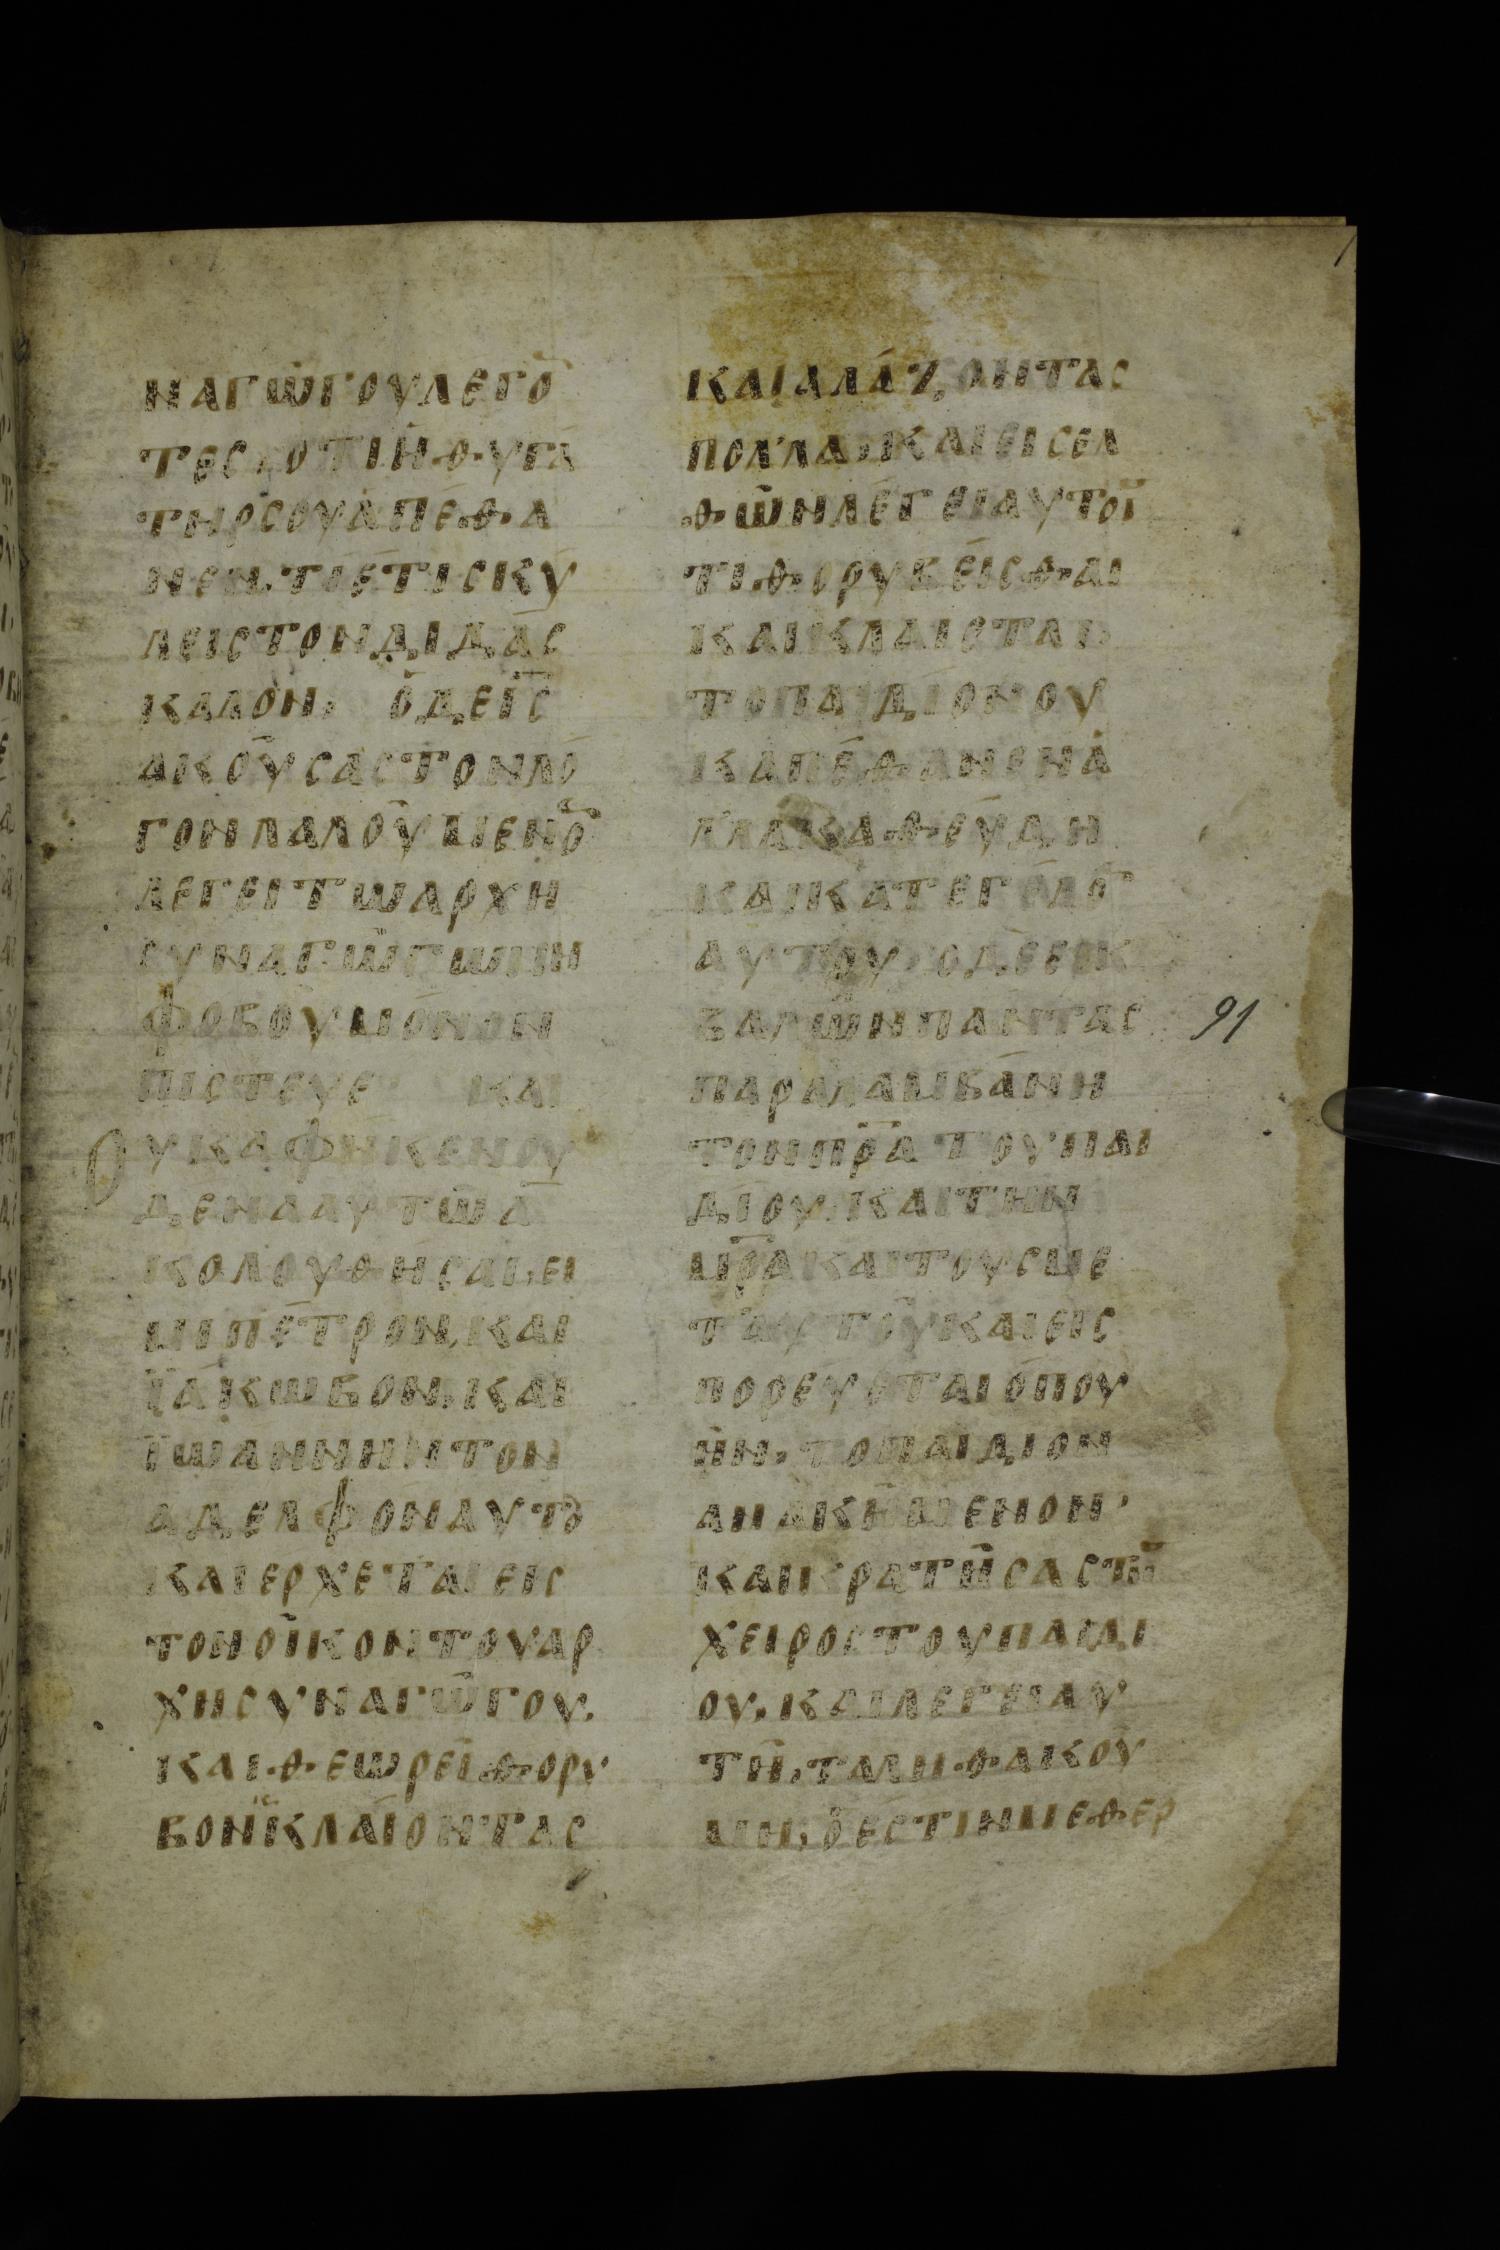 ΝΑΓΩΓΟΥΛΕΓΟ̅
ΤΕϹ, ΟΤΙΗΘΥΓΑ
ΤΗΡϹΟΥΑΠΕΘΑ
ΝΕΝ. ΤΙΕΤΙϹΚΥ
ΛΕΙϹΤΟΝΔΙΔΑϹ
ΚΑΛΟΝ, ΟΔΕΙ̅Ϲ̅
ΑΚΟΥϹΑϹΤΟΝΛΟ
ΓΟΝΛΑΛΟΥΜΕΝΟ̅
ΛΕΓΕΙΤΩΑΡΧΗ
ϹΥΝΑΓΩΓΩΜΗ
ΦΟΒΟΥΜΟΝΟΝ
ΠΙϹΤΕΥΕ ΚΑΙ
ΟΥΚΑΦΗΚΕΝΟΥ
ΔΕΝΑΑΥΤΩΑ
ΚΟΛΟΥΘΗϹΑΙ, ΕΙ
ΜΙΠΕΤΡΟΝ, ΚΑΙ
ΪΑΚΩΒΟΝ, ΚΑΙ
ΪΩΑΝΝΗΝΤΟΝ
ΑΔΕΛΦΟΝΑΥΤȢ
ΚΑΙΕΡΧΕΤΑΙΕΙϹ
ΤΟΝΟΙΚΟΝΤΟΥΑΡ
ΧΗϹΥΝΑΓΩΓΟΥ.
ΚΑΙΘΕΩΡΕΙΘΟΡΥ
ΒΟΝΚΛΑΙΟΝΤΑϹ
ΚΑΙΑΛΑΖΟΝΤΑϹ
ΠΟΛΛΑ, ΚΑΙΕΙϹΕΛ
ΘΩΝΛΕΓΕΙΑΥΤΟΙ̅
ΤΙΘΟΡΥΒΕΙϹΘΑΙ
ΚΑΙΚΛΑΙΕΤΑΙ,
ΤΟΠΑΙΔΙΟΝΟΥ
ΚΑΠΕΘΑΝΕΝΑ
ΛΛΑΚΑΘΕΥΔΗ
ΚΑΙΚΑΤΕΓΕΛΟ̅
ΑΥΤΟΥ, ΟΔΕΕΚ
ΒΑΛΩΝΠΑΝΤΑϹ
ΠΑΡΑΛΑΜΒΑΝΗ
ΤΟΝΠ̅Ρ̅Α̅ΤΟΥΠΑΙ
ΔΙΟΥ, ΚΑΙΤΗΝ
Μ̅Ρ̅Α̅ΚΑΙΤΟΥϹΜΕ
ΤΑΥΤΟΥΚΑΙΕΙϹ
ΠΟΡΕΥΕΤΑΙΟΠΟΥ
ΗΝ, ΤΟΠΑΙΔΙΟΝ
ΑΝΑΚΗΜΕΝΟΝ,
ΚΑΙΚΡΑΤΗϹΑϹΤΗ̅
ΧΕΙΡΟϹΤΟΥΠΑΙΔΙ
ΟΥ, ΚΑΙΛΕΓΕΙΑΥ
ΤΗ, ΤΑΛΗΘΑΚΟΥ
ΜΗ, ΟΕϹΤΙΝΜΕΘΕΡ
91